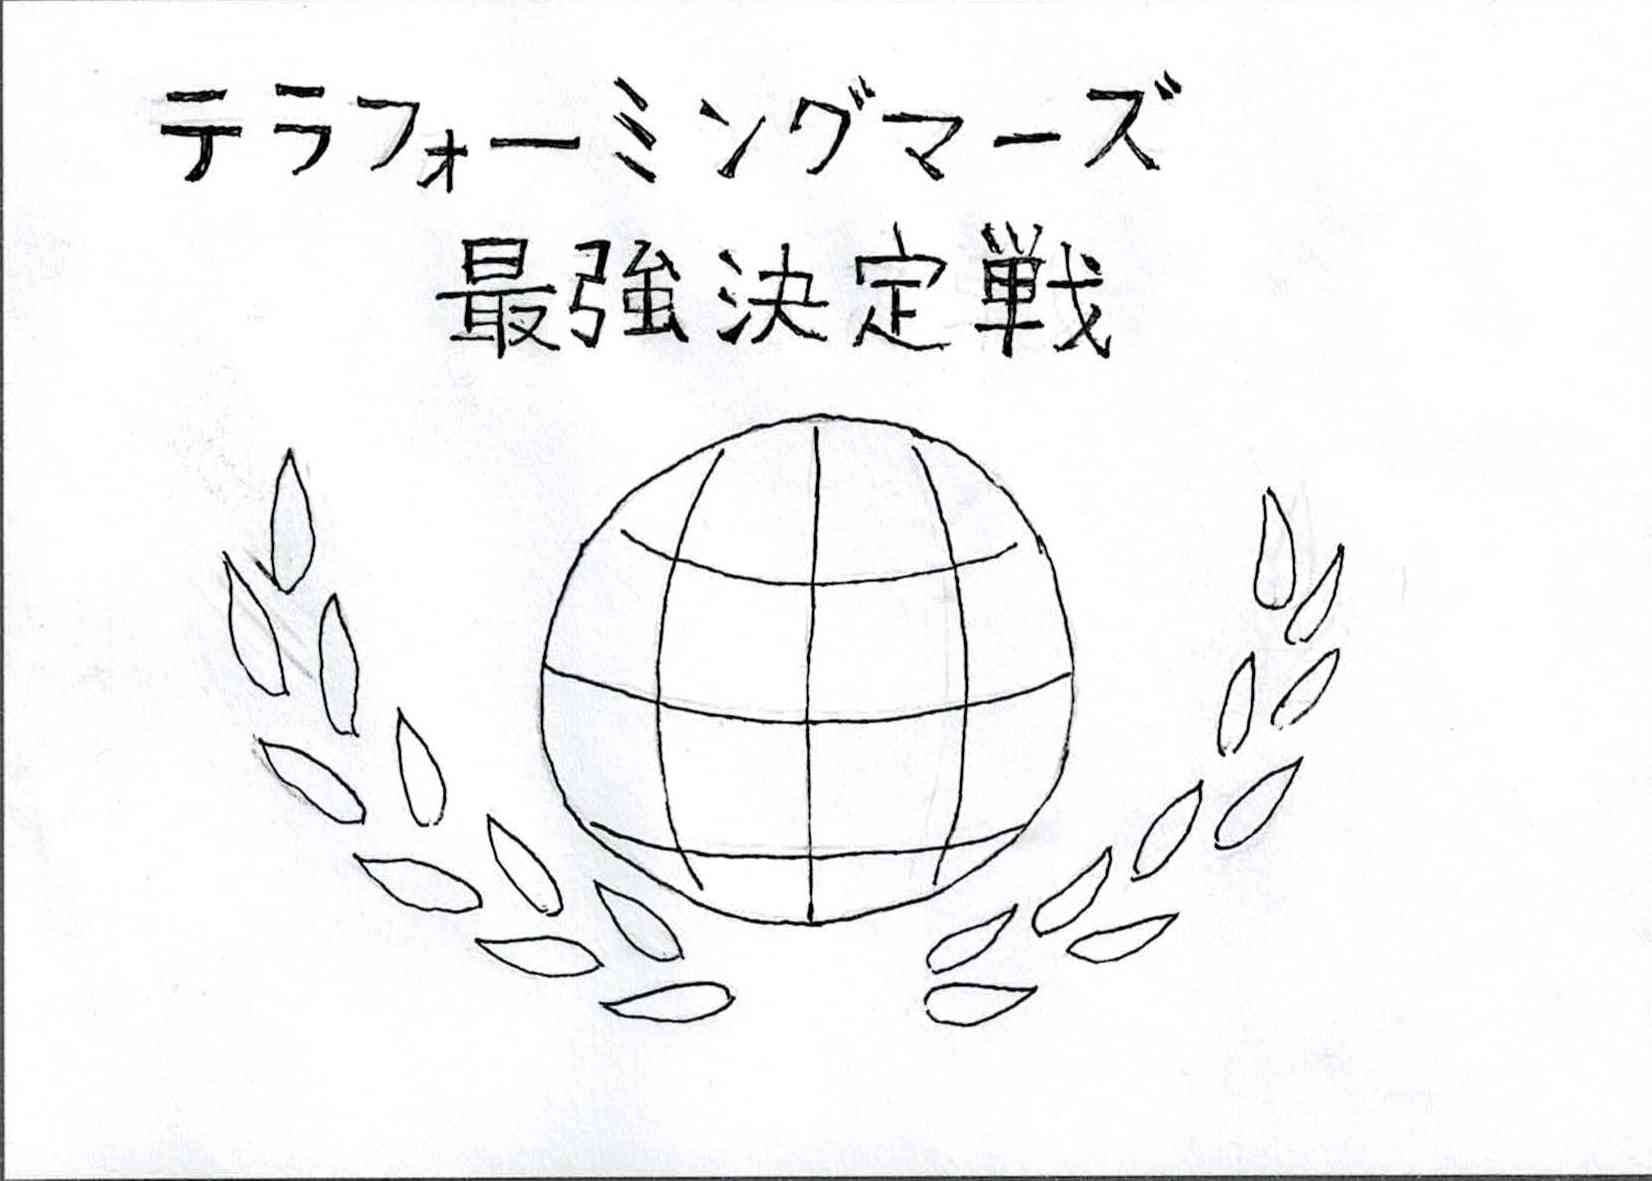 テラフォーミングマーズ
最強決定戦